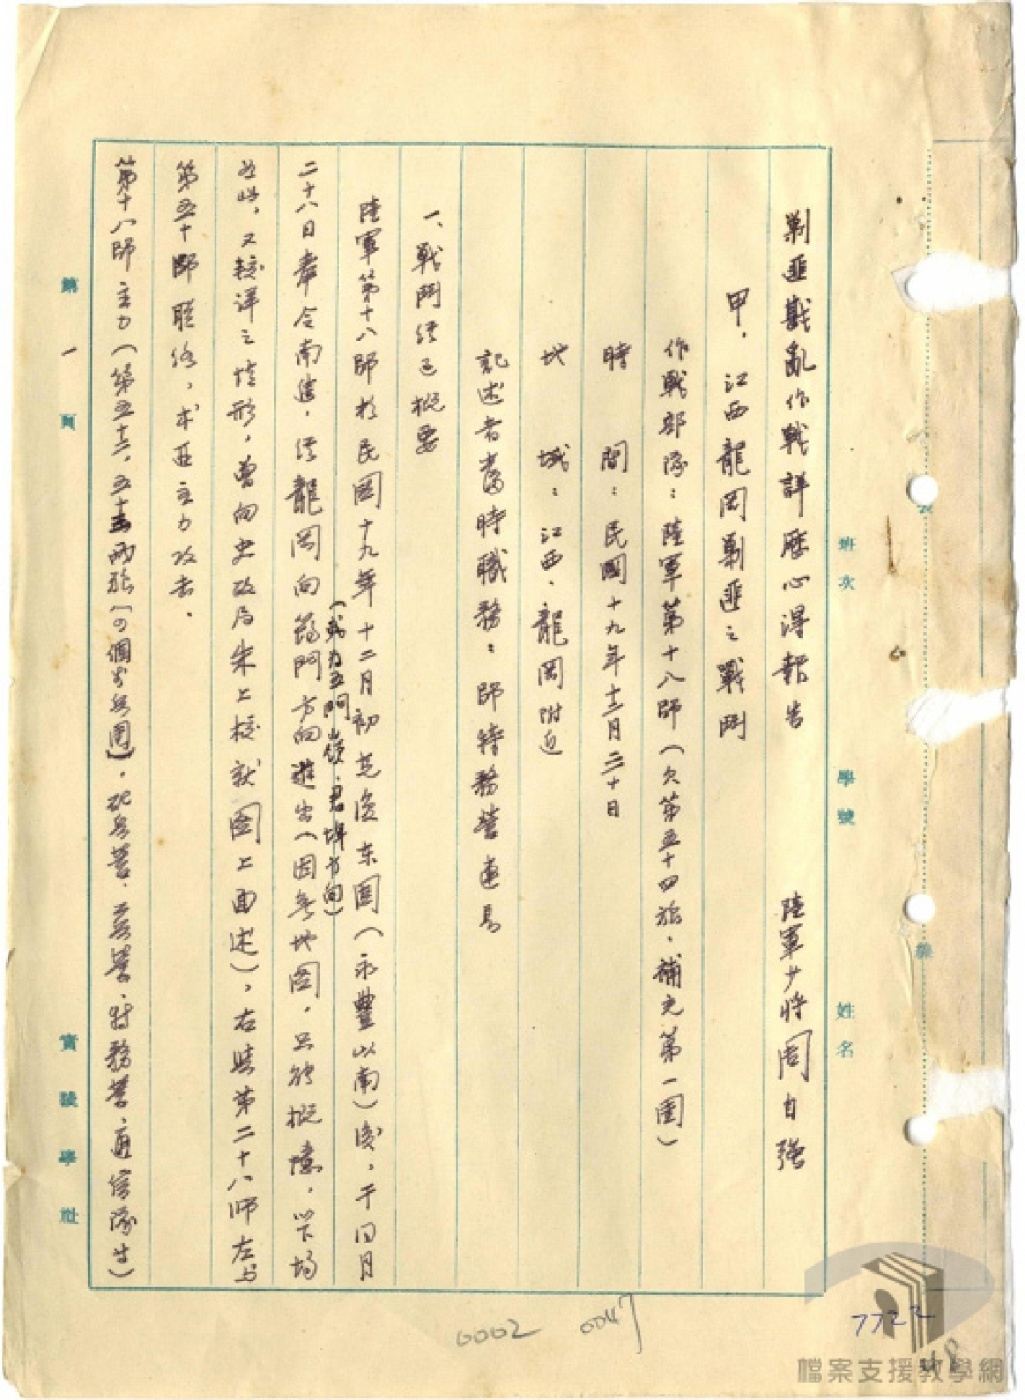 班次 學號 姓名
剿匪戡亂作戰詳歷心得報告 陸軍少將周自強
甲、江西龍岡剿匪之戰鬥
作戰部隊：陸軍第十八師（欠第五十四旅、補充第一團）
時間：民國十九年十二月三十日
地域：江西、龍岡附近
記述者當時職務：師特務營連長
一、戰鬥經過概要
陸軍第十八師於民國十九年十二月初克復东固（永豐以南）後，于同月
（或为五門嶺、君埠方向）
二十八日奉令南進，經龍岡向 門方向進出（因無地圖，只能概憶，
又較詳之情形，曾向史政局朱上校就圖上面述），右與第二十八师左与
第五十師聯絡，求匪主力攻击。
第十八師主力（第五十二、五十三兩旅〔四個步兵團〕，砲兵營、工兵營、特務營、通信隊生）
第一頁
實踐學社
0002 0047
7722
18
檔案支援教學網